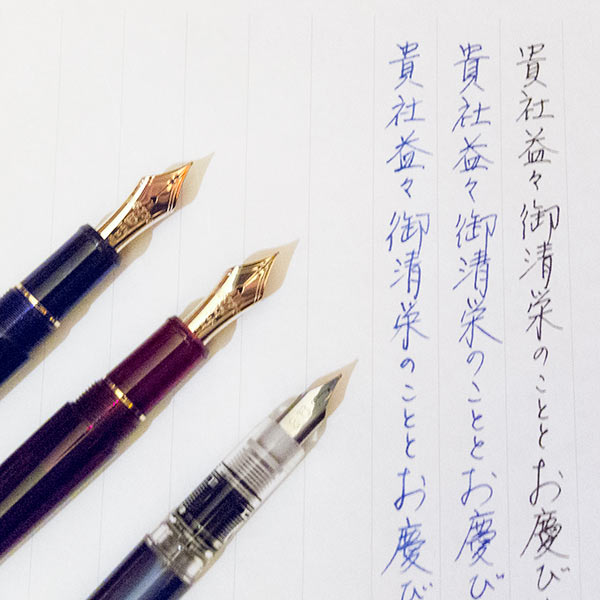 貴社益々御清栄のこととお慶び
貴社益々御清栄のこととお慶び
貴社益々御清栄のこととお慶び